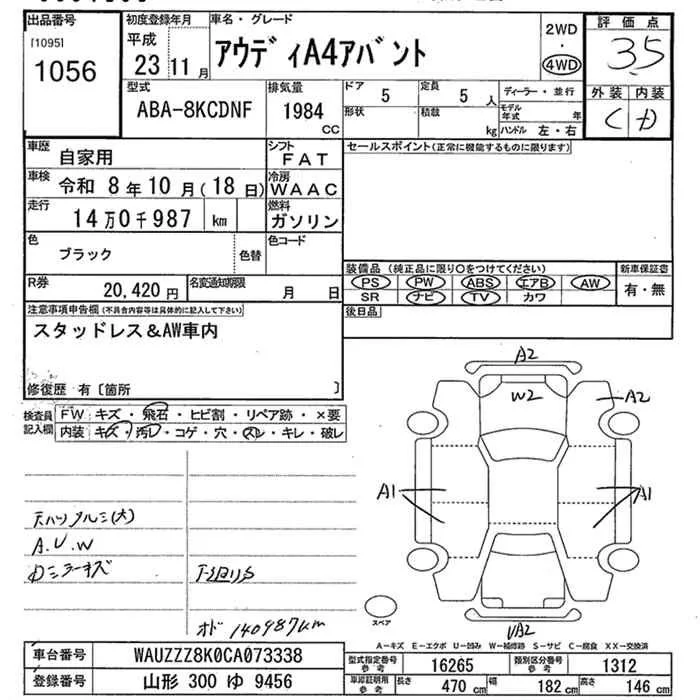 出品番号
[1095]
1056
初度登録年月
平成
23 11 月
車名・グレード
アウディA4アバント
2WD
・
4WD
評価点
3.5
外装 内装
C
型式
ABA-8KCDNF
排気量
1984
CC
ドア
5
定員
5 人
形状
積載
kg
ディーラー・並行
モデル年式 年
ハンドル 左・右
車歴
自家用
シフト
FAT
車検
令和 8年 10月(18日)
冷房
WAAC
走行
14万0千987 km
燃料
ガソリン
色
ブラック
色替
色コード
R券
20,420 円
名変通知期限
月 日
セールスポイント(正常に機能するものに限ります)
装備品(純正品に限り○をつけてください)
PS PW ABS エアB AW
SR ナビ TV カワ
新車保証書
有・無
後日品
注意事項申告欄(不具合内容等は具体的に記入して下さい)
スタッドレス&AW車内
修復歴 有〔箇所 〕
検査員記入欄
FW キズ・飛石・ヒビ割・リペア跡・×要
内装 キズ・汚レ・コゲ・穴・スレ・キレ・破レ
A2
W2
A2
A1
A1
A.U.W
オド 140987km
A2
スペア
A-キズ E-エクボ U-凹み W-補修跡 S-サビ C-腐食 XX-交換済
車台番号
WAUZZZ8K0CA073338
登録番号
山形 300 ゆ 9456
型式指定番号
参考
16265
類別区分番号
参考
1312
車庫証明用
参考
長さ
470 cm
幅
182 cm
高さ
146 cm